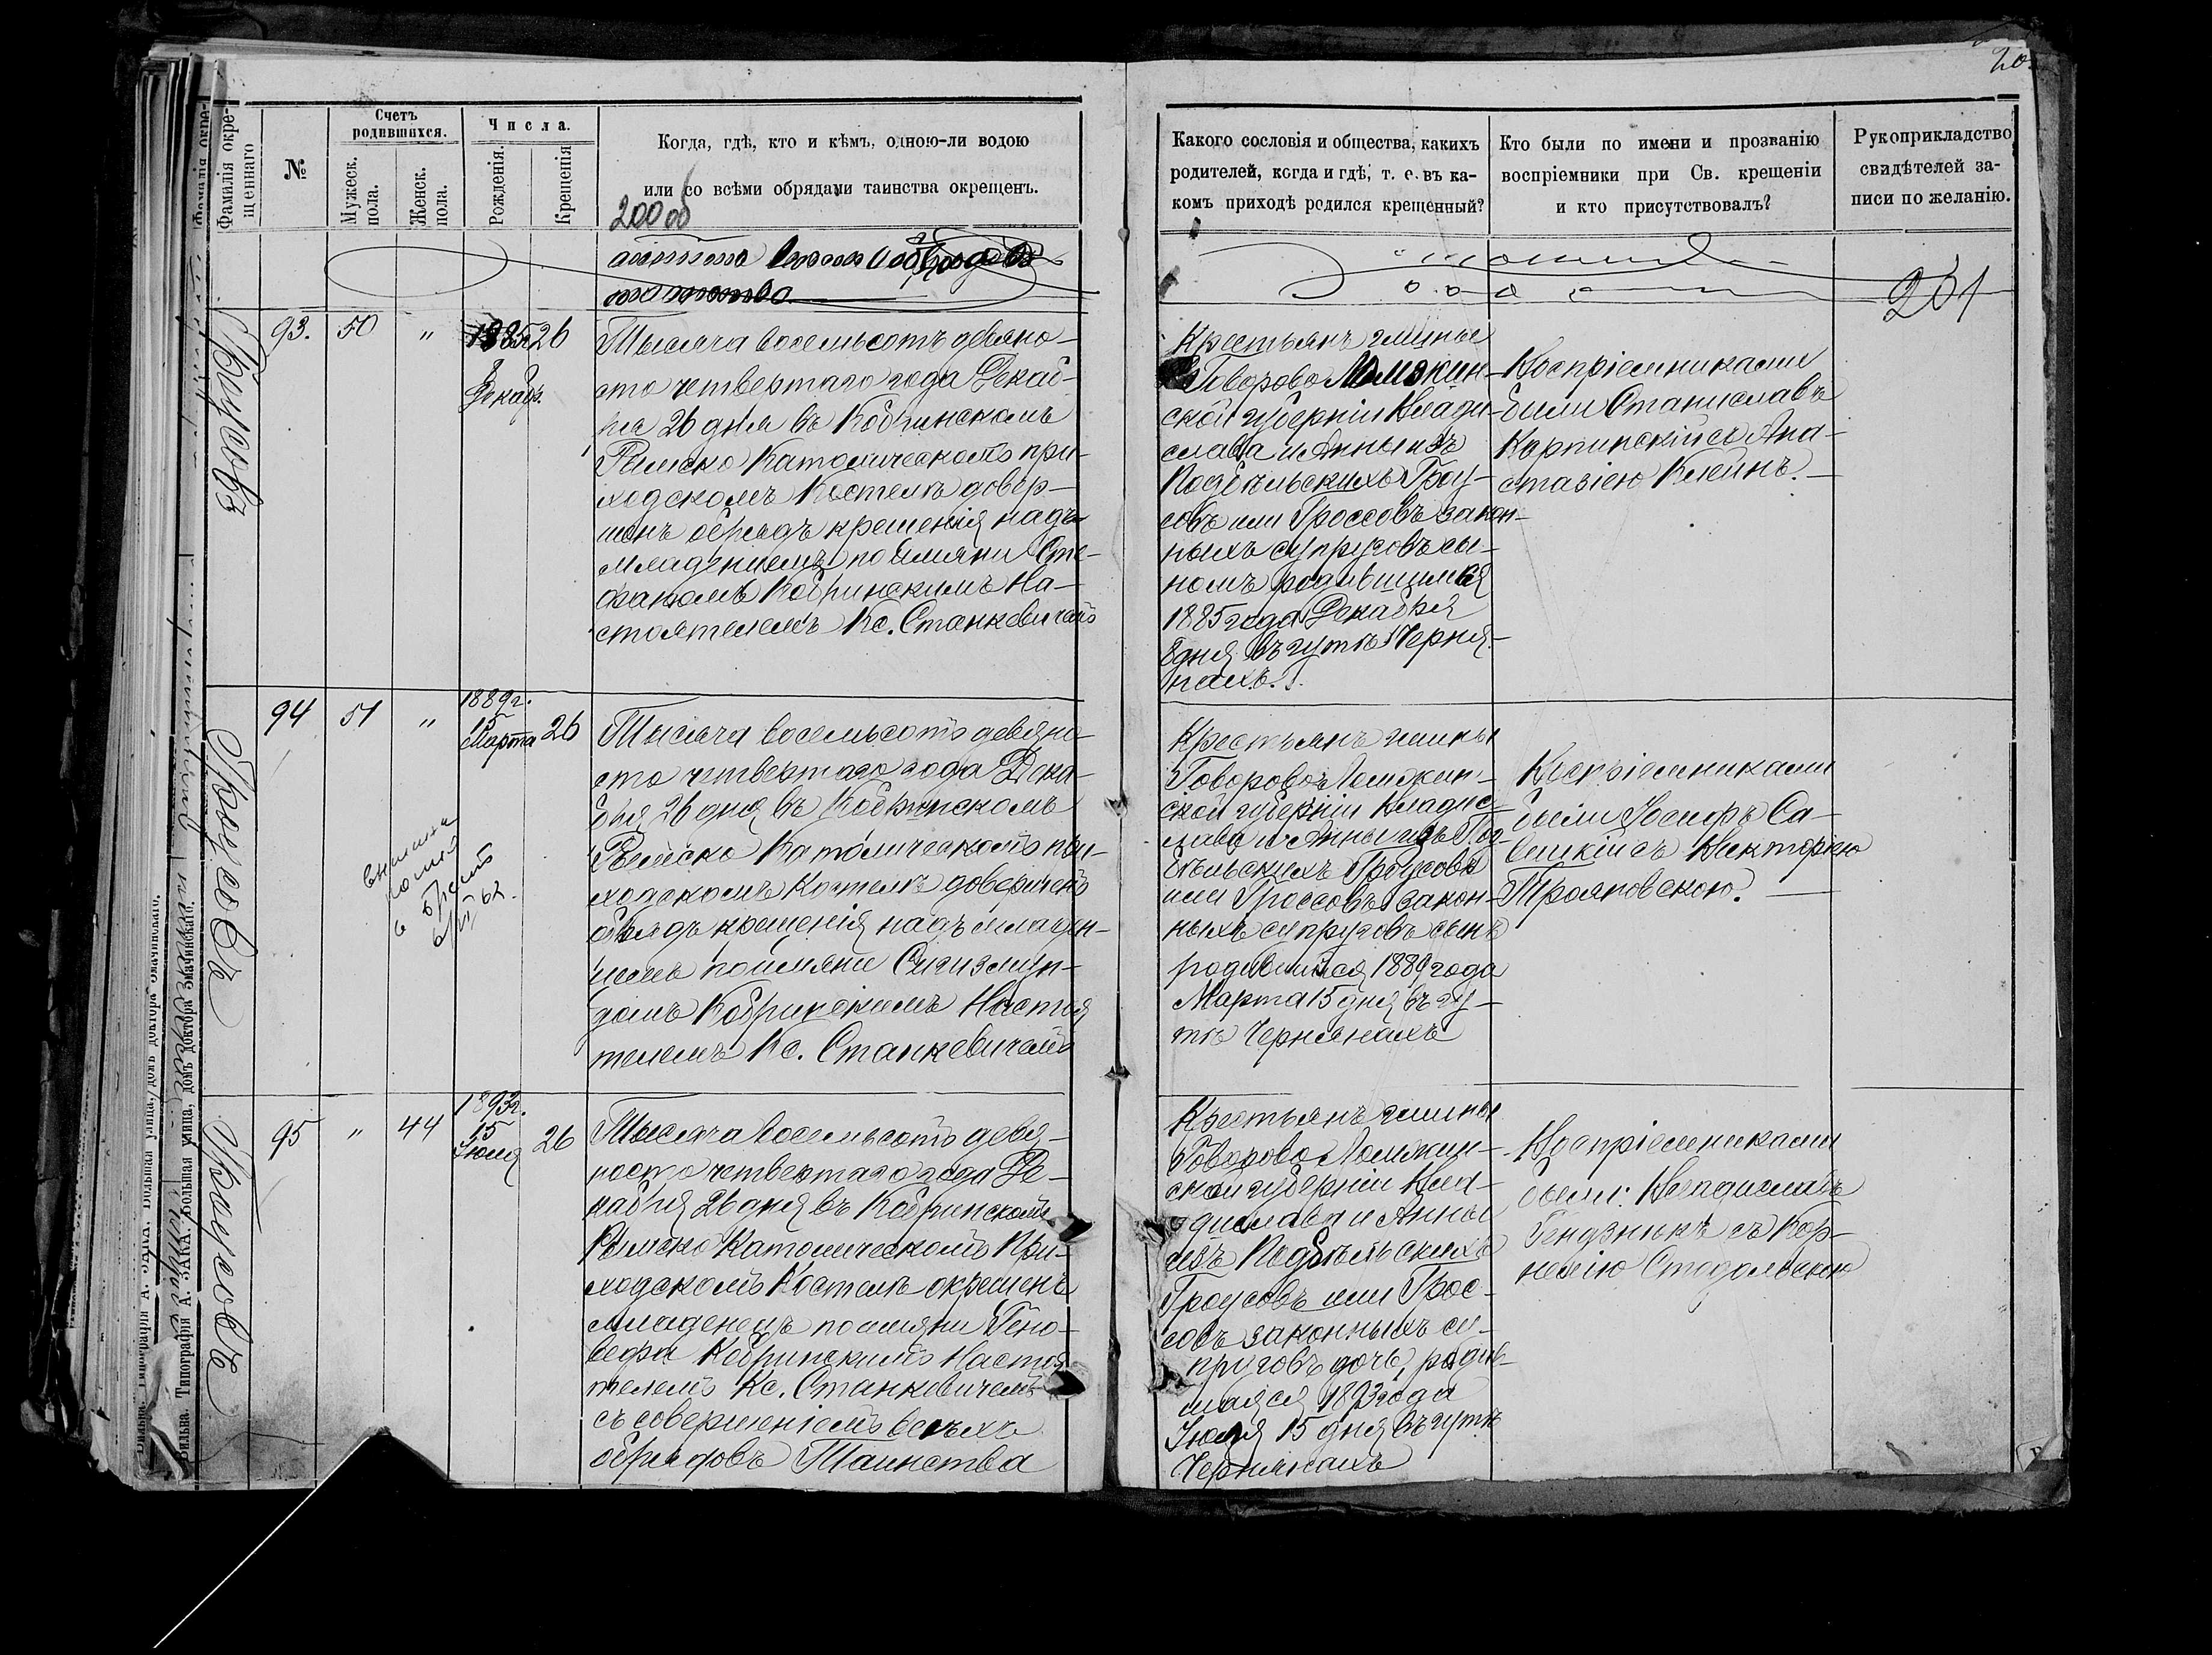 20
Фамилія окре-
щеннаго
№
Счетъ
родившихся.
Мужеск.
пола.
Женск.
пола.
Числа.
Рожденія.
Крещенія
Когда, гдѣ, кто и кѣмъ, одною-ли водою
или со всѣми обрядами таинства окрещенъ.
200 об
Какого сословія и общества, какихъ
родителей, когда и гдѣ, т. е. въ ка-
комъ приходѣ родился крещенный?
Кто были по имени и прозванію
воспріемники при Св. крещеніи
и кто присутствовалъ?
Рукоприкладство
свидѣтелей за-
писи по желанію.
201
Гроусовъ
93.
50
"
1885
8
Декабр.
26
Тысяча восемьсотъ девяно-
сто четвертаго года Декаб-
ря 26 дня въ Кобринскомъ
Римско Католическомъ при-
ходскомъ Костелѣ довер-
шенъ обрядъ крещенія надъ
младенцемъ по имяни Сте-
фаномъ Кобринскимъ На-
стоятелемъ Кс. Станкевичемъ
Крестьянъ гмины
Говорово Ломжин-
ской губерніи Влади-
слава и Анны изъ
Подбѣльскихъ Гроу-
совъ или Гроссовъ закон-
ныхъ супруговъ сы-
номъ родившимся
1885 года Декабря
8 дня въ гутѣ Черня-
нахъ.
Воспріемниками
были Станиславъ
Карпинскій съ Ана-
стазіею Клейнъ.
Гроусовъ
94
51
"
1889 г.
15
Марта
26
Тысяча восемьсотъ девяно-
сто четвертаго года Дека-
бря 26 дня въ Кобринскомъ
Римско Католическомъ при-
ходскомъ Костелѣ довершенъ
обрядъ крещенія надъ младен-
цемъ по имяни Сигизмун-
домъ Кобринскимъ Настоя
телемъ Кс. Станкевичемъ
Крестьянъ гмины
Говорово Ломжин-
ской губерніи Владис-
лава и Анны изъ Под-
бѣльскихъ Гроусовъ
или Гроссовъ закон-
ныхъ супруговъ сынъ
родившійся 1889 года
Марта 15 дня въ гу-
тѣ Чернянахъ
Воспріемниками
были Іосифъ Са-
вицкій съ Викторіею
Трояновскою.
Гроусовъ
95
"
44
1893 г.
15
Іюля
26
Тысяча восемьсотъ девя-
носто четвертаго года Де-
кабря 26 дня въ Кобринскомъ
Римско Католическомъ При-
ходскомъ Костелѣ окрещенъ
младенецъ по имяни Гено-
вефа Кобринскимъ Настоя
телемъ Кс. Станкевичемъ
съ совершеніемъ всѣхъ
обрядовъ Таинства
Крестьянъ гмины
Говорово Ломжин-
ской губерніи Вла-
дислава и Анны
изъ Подбѣльскихъ
Гроусовъ или Грос-
совъ законныхъ су-
пруговъ дочь, родив-
шаяся 1893 года
Іюля 15 дня въ гутѣ
Чернянахъ
Воспріемниками
были: Владиславъ
Гендзникъ съ Кор-
неліею Стодольскою
Вильна. Типографія А. ЗАКА, Большая улица, домъ доктора Змачинскаго.